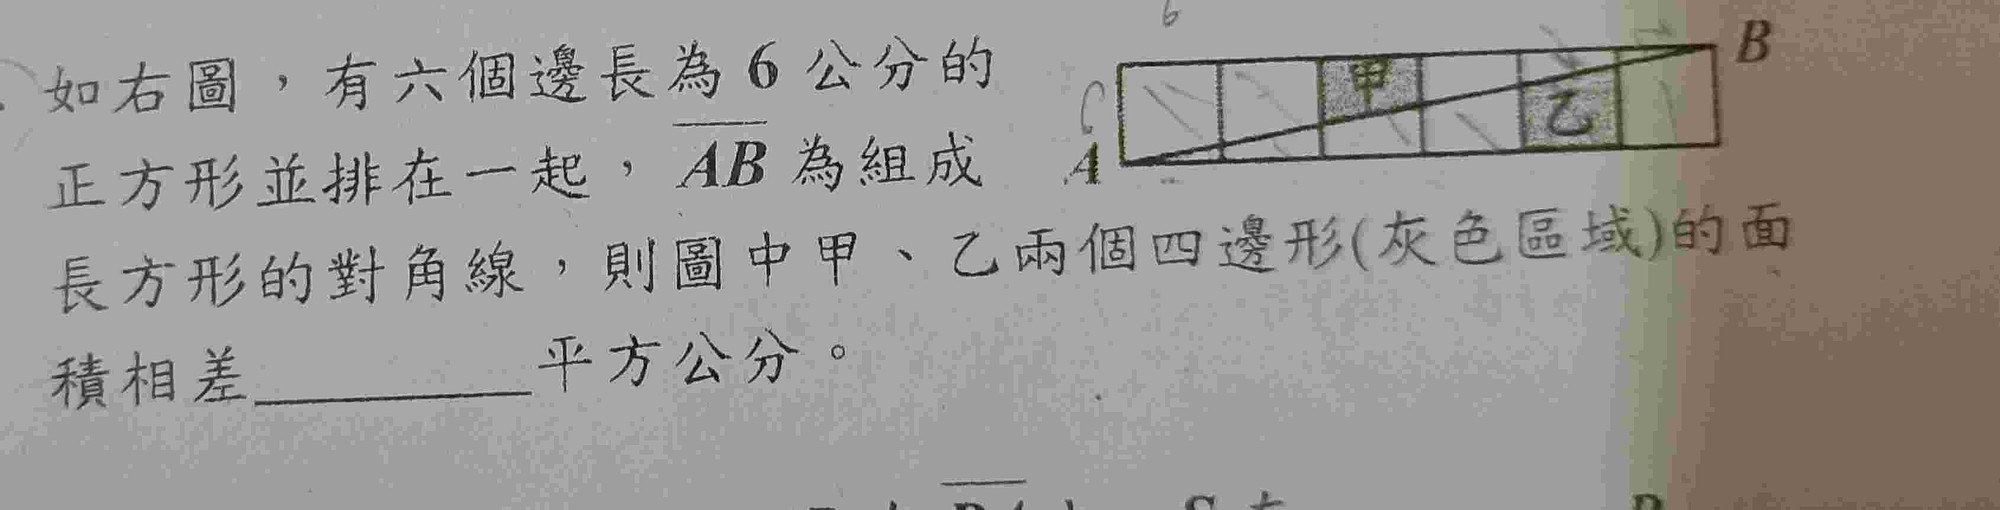 6
如右圖，有六個邊長為 6 公分的
正方形並排在一起，AB 為組成
長方形的對角線，則圖中甲、乙兩個四邊形(灰色區域)的面
積相差________平方公分。
B
甲
乙
6
A